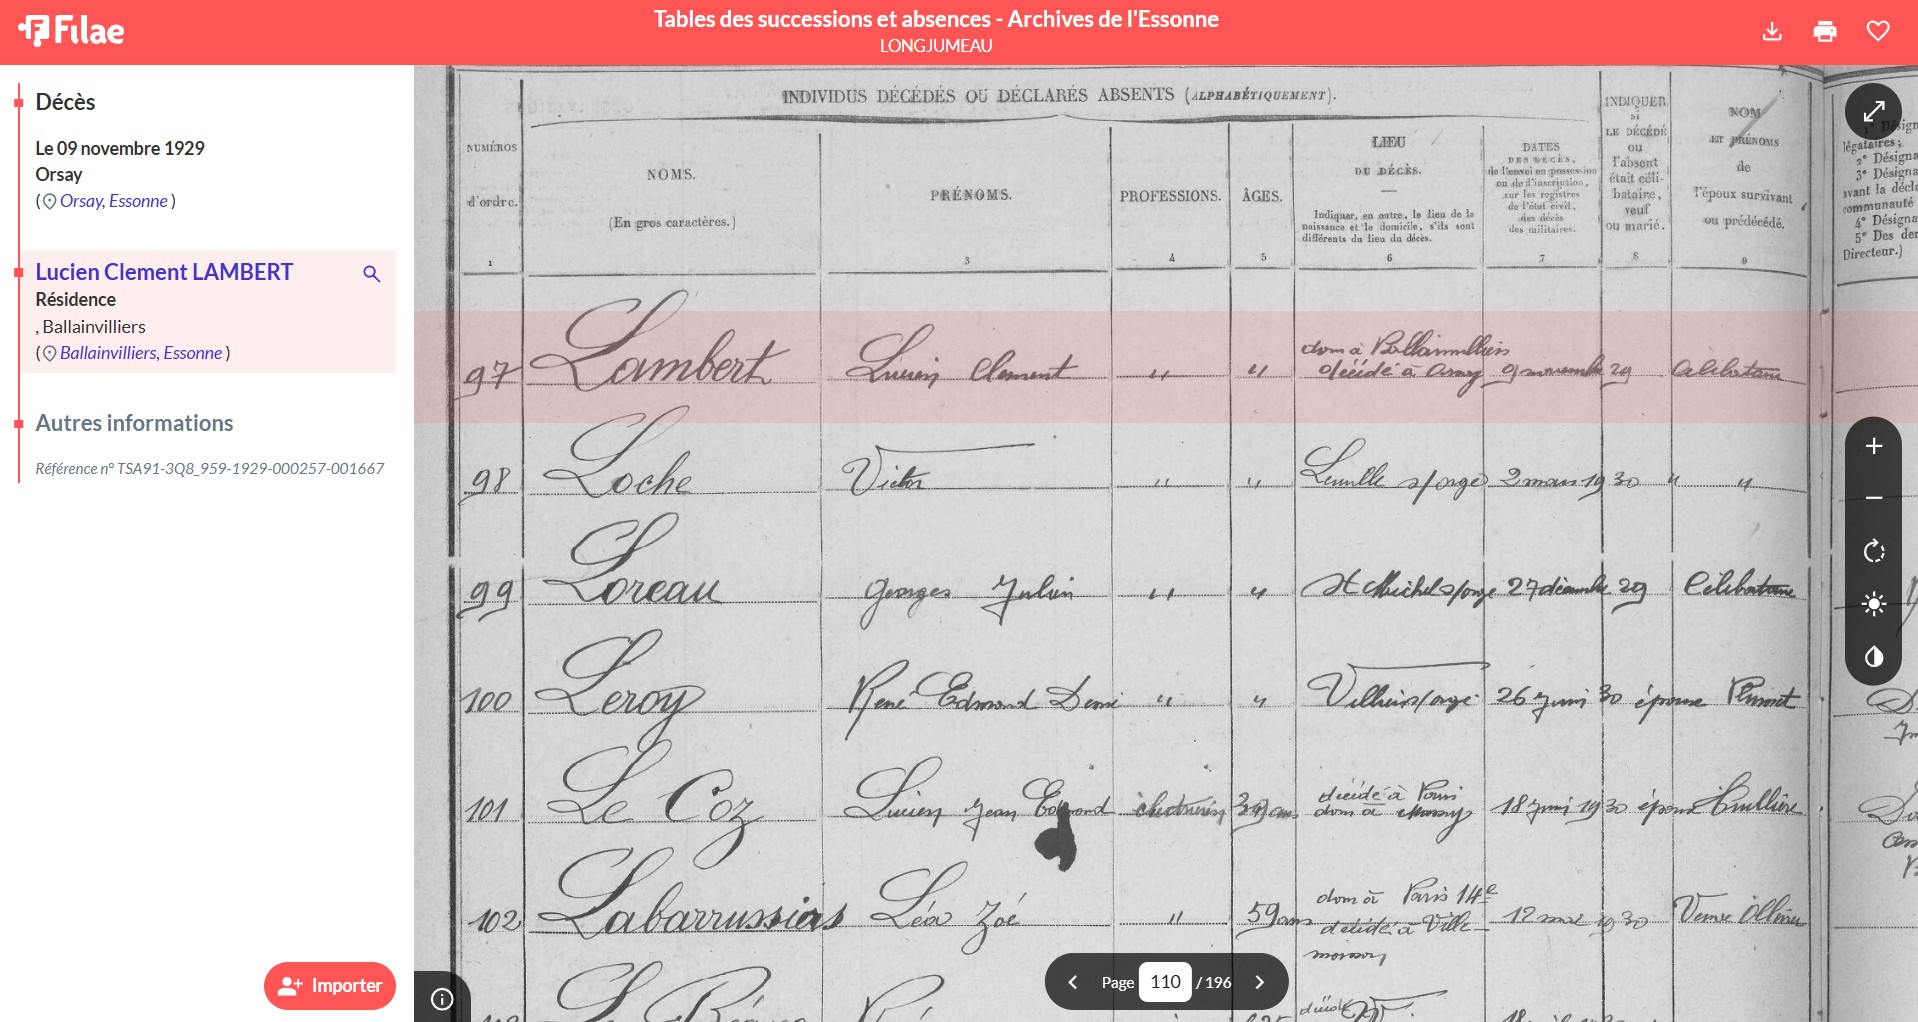 Filae
Tables des successions et absences - Archives de l'Essonne
LONGJUMEAU
Décès
Le 09 novembre 1929
Orsay
( Orsay, Essonne )
Lucien Clement LAMBERT
Résidence
, Ballainvilliers
( Ballainvilliers, Essonne )
Autres informations
Référence n° TSA91-3Q8_959-1929-000257-001667
Importer
INDIVIDUS DÉCÉDÉS OU DÉCLARÉS ABSENTS (ALPHABÉTIQUEMENT).
NUMÉROS
d'ordre.
1
NOMS.
(En gros caractères.)
PRÉNOMS.
3
PROFESSIONS.
4
ÂGES.
5
LIEU
DU DÉCÈS.
Indiquer, en outre, le lieu de la
naissance et le domicile, s'ils sont
différents du lieu du décès.
6
DATES
DES DÉCÈS,
de l'envoi en possession
ou de l'inscription,
sur les registres
de l'état civil,
des décès
des militaires.
7
INDIQUER
si
LE DÉCÉDÉ
ou
l'absent
était céli-
bataire,
veuf
ou marié.
8
NOM
ET PRÉNOMS
de
l'époux survivant
ou prédécédé.
9
1° Désign
légataires;
2° Désigna
3° Désigna
avant la décla
communauté
4° Désigna
5° Des der
Directeur.)
97 Lambert Lucien Clement " " dom à Ballainvilliers
décédé à Orsay 9 novembre 29 Célibataire
98 Loche Victor " " s/orge 2 mars 1930 " "
99 Loreau Georges Julien " " St Michel s/orge 27 décembre 29 Célibataire
100 Leroy René Edmond Denis " " s/orge 26 juin 30 épouse
101 Le Coz Lucien Jean Edmond 39 ans décédé à Paris
dom à Massy 18 juin 1930 épouse
102 Labarrussias Léa Zoé " 59 ans dom à Paris 14e
décédé à Ville-
moisson 12 mai 1930 Veuve Ollivier
Page 110 / 196